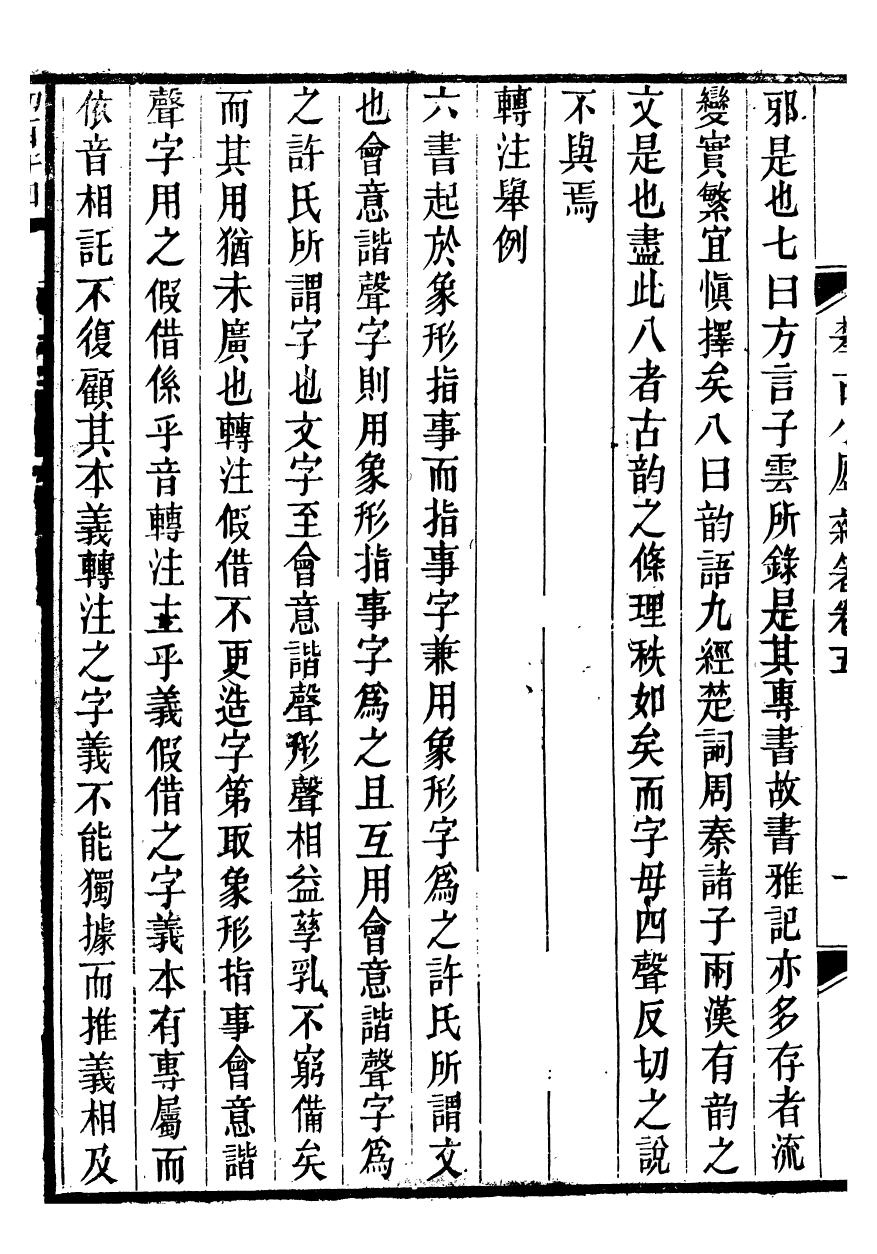 邪是也七曰方言子雲所錄是其專書故書雅記亦多存者流
變實繁宜慎擇矣八曰韵語九經楚詞周秦諸子兩漢有韵之
文是也盡此八者古韵之條理秩如矣而字母四聲反切之說
不與焉
轉注舉例
六書起於象形指事而指事字兼用象形字爲之許氏所謂文
也會意諧聲字則用象形指事字爲之且互用會意諧聲字爲
之許氏所謂字也文字至會意諧聲形聲相益孳乳不窮備矣
而其用猶未廣也轉注假借不更造字第取象形指事會意諧
聲字用之假借係乎音轉注主乎義假借之字義本有專屬而
依音相託不復顧其本義轉注之字義不能獨據而推義相及